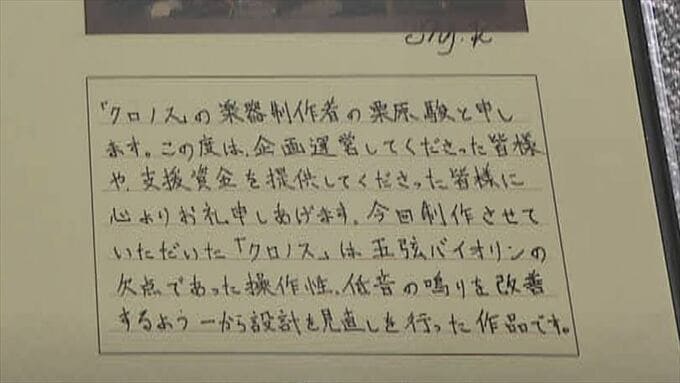 「クロノス」の楽器制作者の栗原駿と申し
ます。この度は、企画運営してくださった皆様
や、支援資金を提供してくださった皆様に
心よりお礼申しあげます。今回制作させて
いただいた「クロノス」は五弦バイオリンの
欠点であった操作性、低音の鳴りを改善
するよう一から設計を見直しを行った作品です。